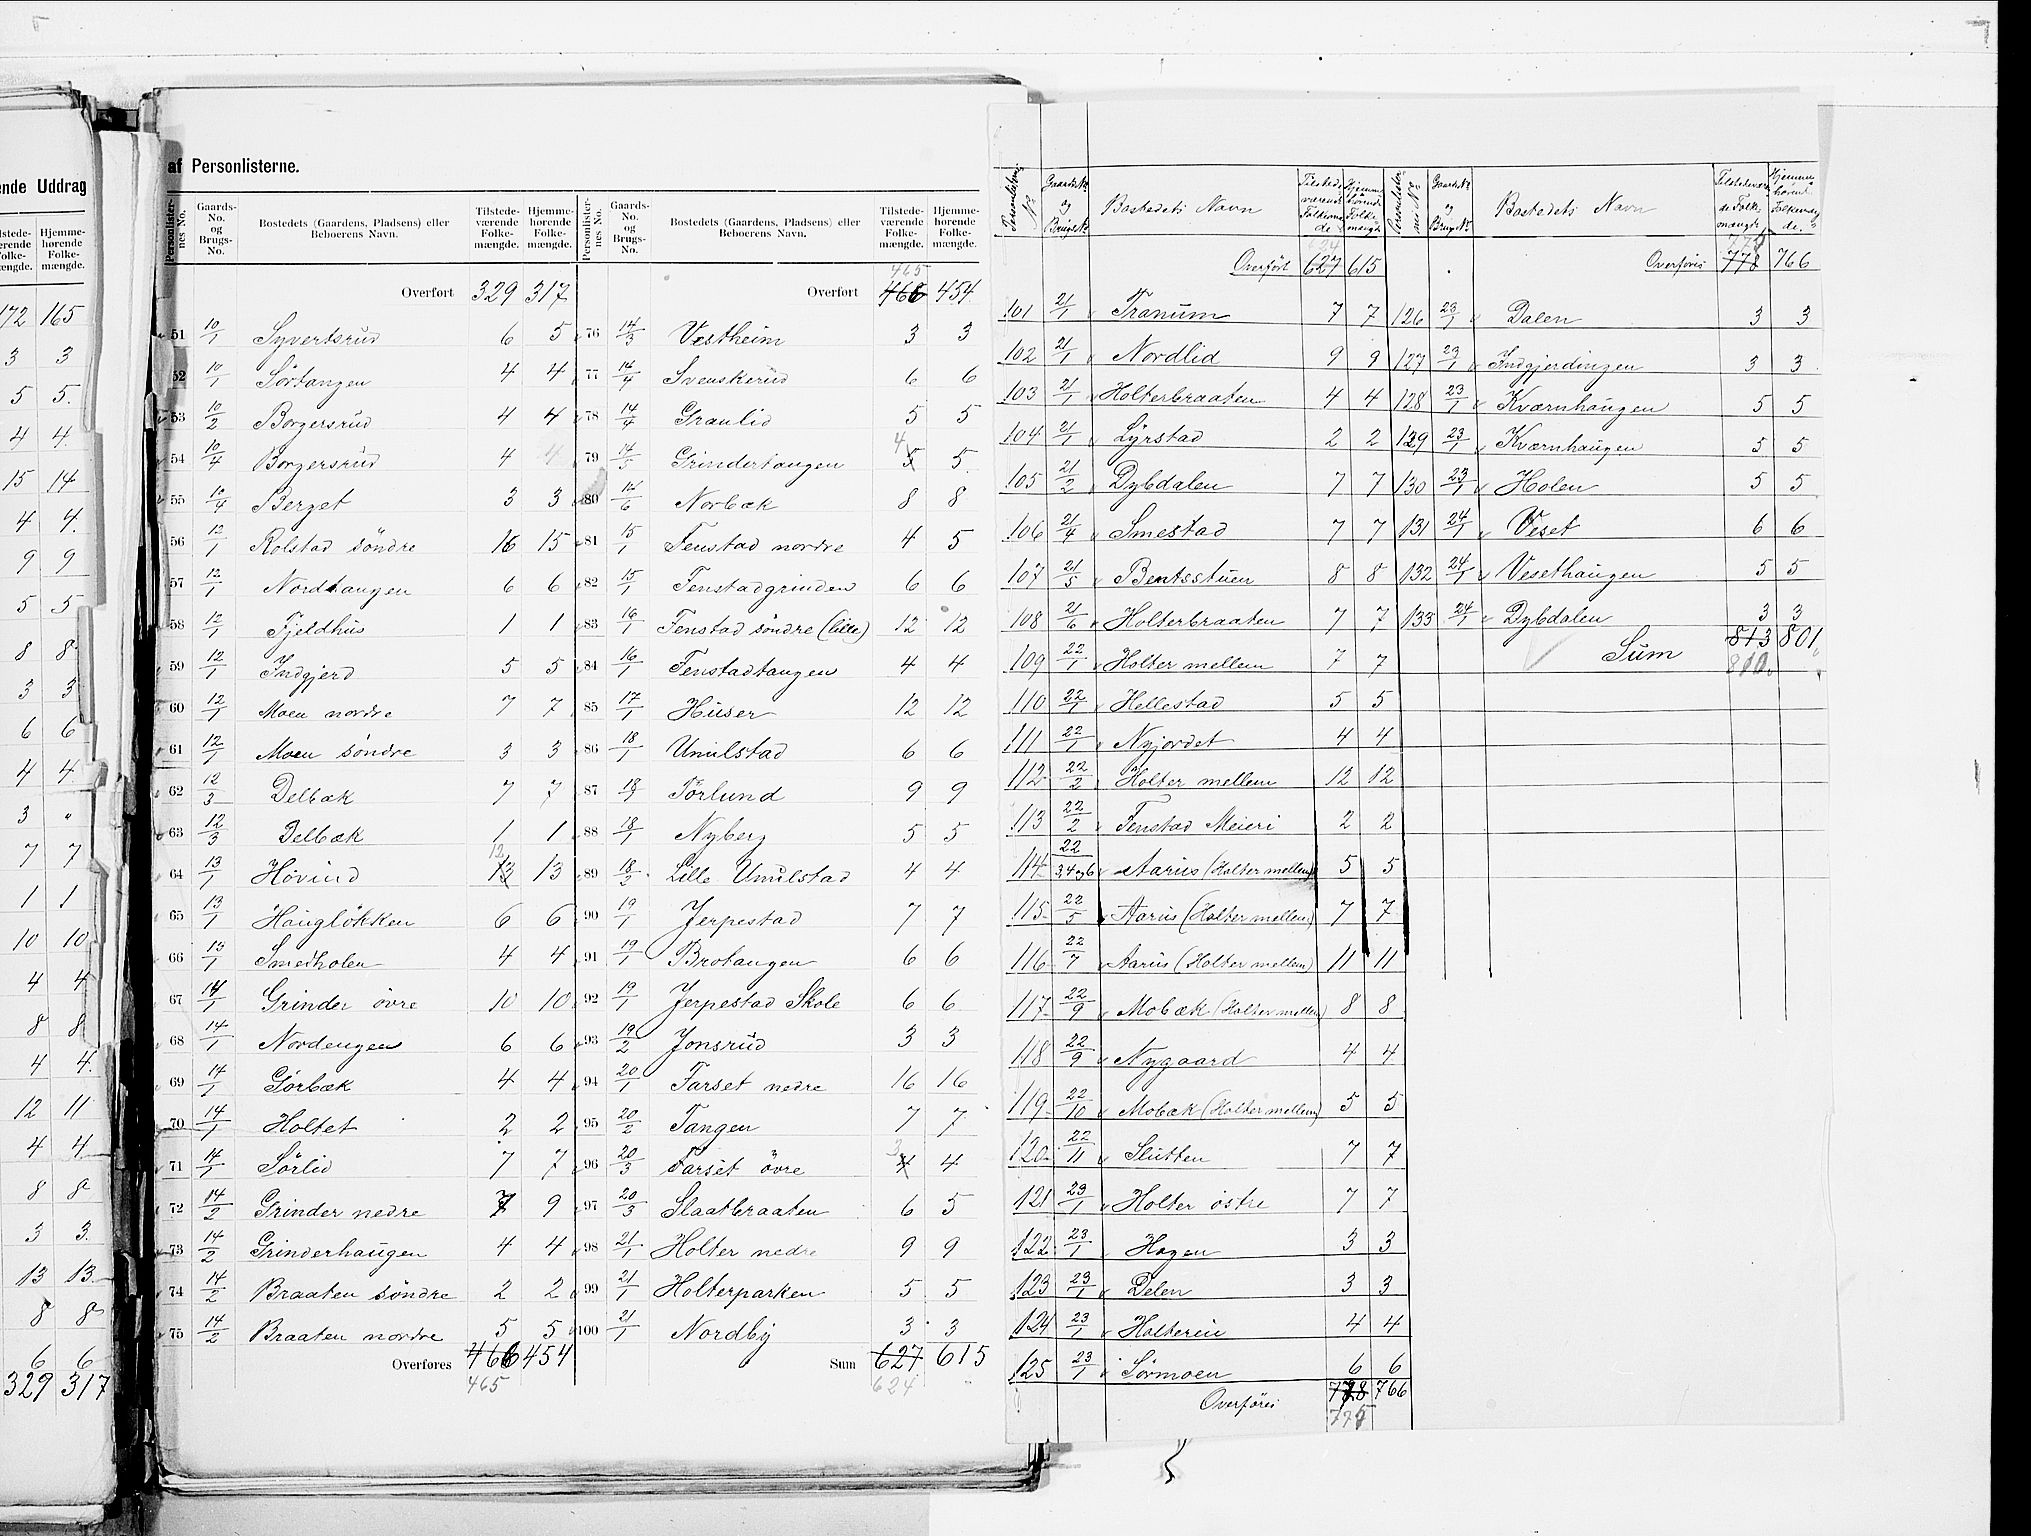 ende Uddrag
Tilstede-værende Folke-mængde. Hjemme-hørende Folke-mængde.
172 165
3 3
5 5.
4 4.
15 14
4 4.
9 9
5 5
8 8
3 3
6 6
4 4
3 "
7 7
1 1
10 10
4 4
8 8
4 4.
12 11
4 4
8 8
3 3.
13 13
8 8
6 6
329 317
af Personlisterne.
Personlister-nes No. Gaards-No. og Brugs-No. Bostedets (Gaardens, Pladsens) eller Beboerens Navn. Tilstede-værende Folke-mængde. Hjemme-hørende Folke-mængde.
Overført 329 317
51 10/1 Syvertsrud 6 5
52 10/1 Sørtangen 4 4
53 10/2 Borgersrud 4 4
54 10/4 Borgersrud 4 4
55 10/4 Berget 3 3
56 12/1 Rolstad söndre 16 15
57 12/1 Nordtangen 6 6
58 12/1 Fjeldhus 1 1
59 12/1 Indgjerd 5 5
60 12/1 Moen nordre 7 7
61 12/1 Moen söndre 3 3
62 12/3 Delbæk 7 7
63 12/3 Delbæk 1 1
64 13/1 Hovind 13 12 13
65 13/1 Hauglökken 6 6
66 13/1 Smedholen 4 4
67 14/1 Grinder övre 10 10
68 14/1 Nordengen 6 6
69 14/1 Görbæk 4 4
70 14/1 Holtet 2 2
71 14/1 Sörlid 7 7
72 14/2 Grinder nedre 7 9
73 14/2 Grinderhaugen 4 4
74 14/2 Braaten söndre 2 2
75 14/2 Braaten nordre 5 5
Overføres 466 454
465
Personlister-nes No. Gaards-No. og Brugs-No. Bostedets (Gaardens, Pladsens) eller Beboerens Navn. Tilstede-værende Folke-mængde. Hjemme-hørende Folke-mængde.
465
Overført 466 454
76 14/3 Vestheim 3 3
77 14/4 Svenskerud 6 6
78 14/4 Granlid 5 5
79 14/5 Grindertangen 5 4 5
80 14/6 Norbæk 8 8
81 15/1 Fenstad nordre 4 5
82 15/1 Fenstadgrinden 6 6
83 16/1 Fenstad söndre (lille) 12 12
84 16/1 Fenstadtangen 4 4
85 17/1 Huser 12 12
86 18/1 Unulstad 6 6
87 18/1 Förlund 9 9
88 18/1 Nyberg 5 5
89 18/2 Lille Unulstad 4 4
90 19/1 Jerpestad 7 7
91 19/1 Brotangen 6 6
92 19/1 Jerpestad Skole 6 6
93 19/2 Jonsrud 3 3
94 20/1 Farset nedre 16 16
95 20/2 Tangen 7 7
96 20/3 Farset övre 4 3 4
97 20/3 Slaatbraaten 6 5
98 21/1 Holter nedre 9 9
99 21/1 Holterparken 5 5
100 21/1 Nordby 3 3
Sum 627 615
624
Gaards No og Brugs No Bostedets Navn
624
Overført 627 615
101 21/1 Tranum 7 7
102 21/1 Nordlid 9 9
103 21/1 Holterbraaten 4 4
104 21/1 Lyrstad 2 2
105 21/2 Dybdalen 7 7
106 21/4 Smestad 7 7
107 21/5 Bentsstuen 8 8
108 21/6 Holterbraaten 7 7
109 22/1 Holter mellem 7 7
110 22/1 Hellestad 5 5
111 22/1 Nyjordet 4 4
112 22/2 Holter mellem 12 12
113 22/2 Fenstad Meieri 2 2
114 22/3,4 og 6 Aarus (Holter mellem) 5 5
115 22/5 Aarus (Holter mellem) 7 7
116 22/7 Aarus (Holter mellem) 11 11
117 22/9 Mobæk (Holter mellem) 8 8
118 22/9 Nygaard 4 4
119 22/10 Mobæk (Holter mellem) 5 5
120 22/11 Slutten 7 7
121 23/1 Holter östre 7 7
122 23/1 Hagen 3 3
123 23/1 Delen 3 3
124 23/1 Holtereie 4 4
125 23/1 Sörmoen 6 6
Overføres 778 766
775
Gaards No og Brugs No Bostedets Navn
775
Overføres 778 766
126 23/1 Dalen 3 3
127 23/1 Indgjerdingen 3 3
128 23/1 Kværnhaugen 5 5
129 23/1 Kværnhaugen 5 5
130 23/1 Holen 5 5
131 24/1 Veset 6 6
132 24/1 Vesethaugen 5 5
133 24/1 Dybdalen 3 3
Sum 813 801
810